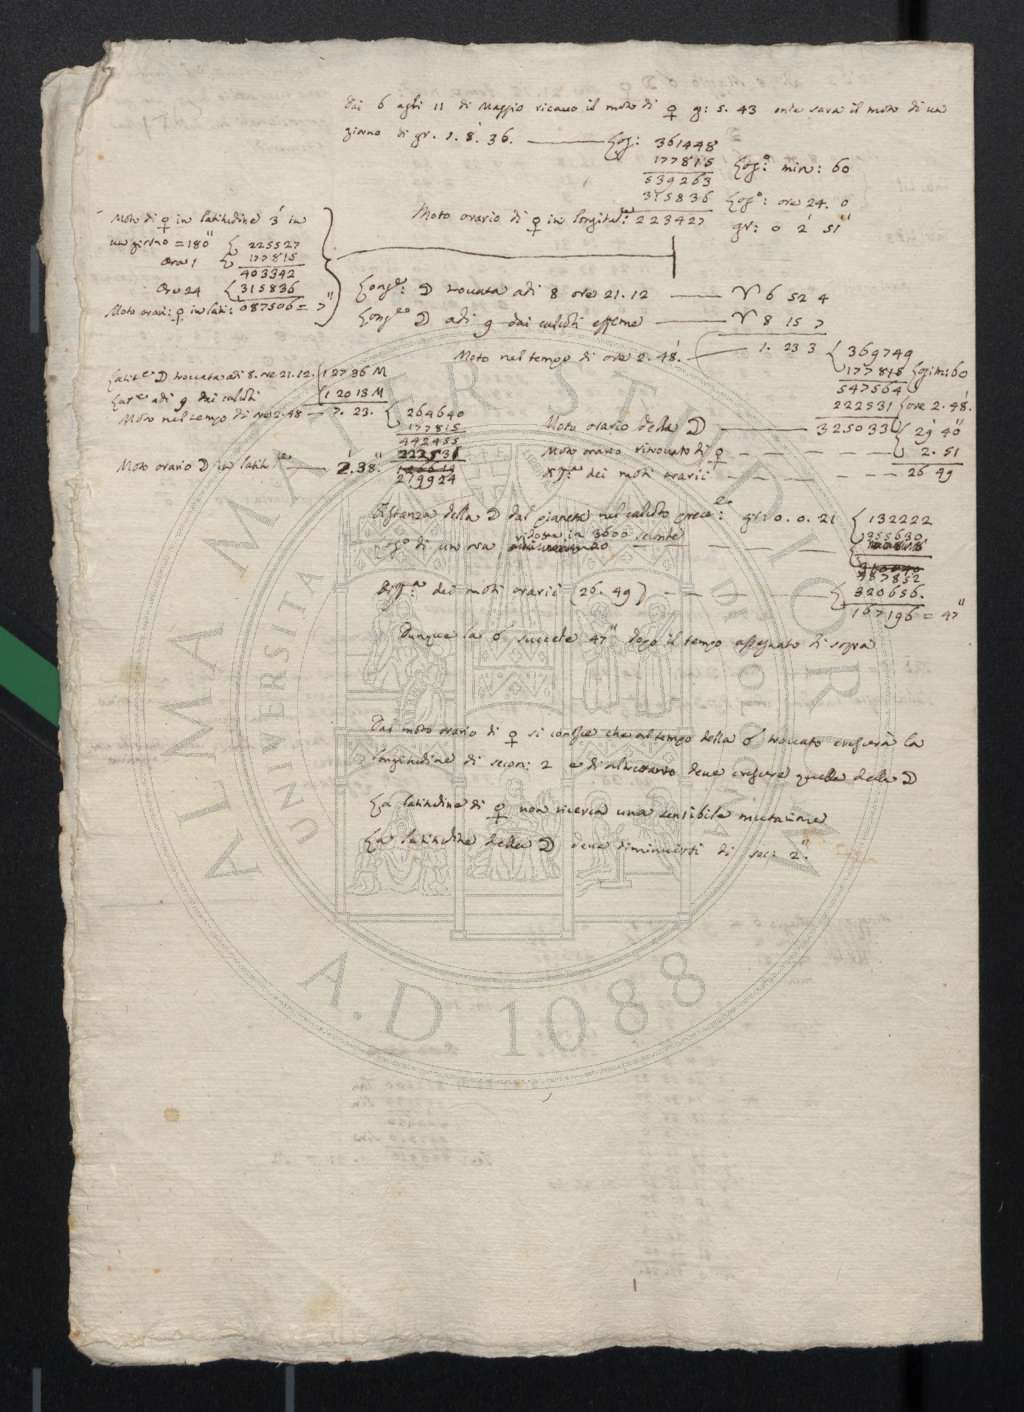 Dai 6 agli 11 di Maggio ricavo il moto di ♀ g: 5. 43 onde sarà il moto di un
giorno di gr. 1. 8. 36. Log: 361448
177815 Log.º min: 60
539263
315836 Log.º: ore 24. 0
Moto orario di ♀ in longitud.ne: 223427 gr: 0 2' 51"
Moto di ♀ in latitudine 3' in
un giorno = 180" 225527
Ora 1 177815
403342
Ore 24 315836
Moto orari: ♀ in lati: 087506 = 7"
Long.e: ☽ trovata adi 8 ore 21. 12 ♈ 6 52 4
Long.e ☽ adi 9 dai calcoli effeme ♈ 8 15 7
Moto nel tempo di ore 2. 48'. 1. 23 3 369749
177815 Log. m: 60
547564
222531 ore 2. 48'.
Latit.e ☽ trovata adi 8. ore 21. 12. 1 2736 M
Lat.e adi 9 dai calcoli 1 2013 M
Moto nel tempo di ore 2. 48 7. 23. 264640
177815
442455
222531
219924
Moto orario ☽ in latit.ne 2'. 38"
Moto orario della ☽ 325033 29' 40"
Moto orario ritrovato di ♀ 2. 51
Diff.a dei moti orarii 26 49
Distanza della ☽ dal pianeta nel calcolo prece.te: gr: 0. 0. 21 132222
Log.º di un ora ridotta in 3600 seconde 355630
487852
Diff.a dei moti orarii (26. 49) 320656.
167196 = 47"
Dunque la ☌ succede 47" dopo il tempo assegnato di sopra
Dal moto orario di ♀ si conosce che al tempo della ☌ trovato crescerà la
longitudine di secon: 2 e di altrettanto deve crescere quella della ☽
La latitudine di ♀ non riceria una sensibile mutazione
La latitudine della ☽ deve diminuirsi di sec: 2".
ALMA MATER STUDIORUM
UNIVERSITÀ DI BOLOGNA
A.D. 1088